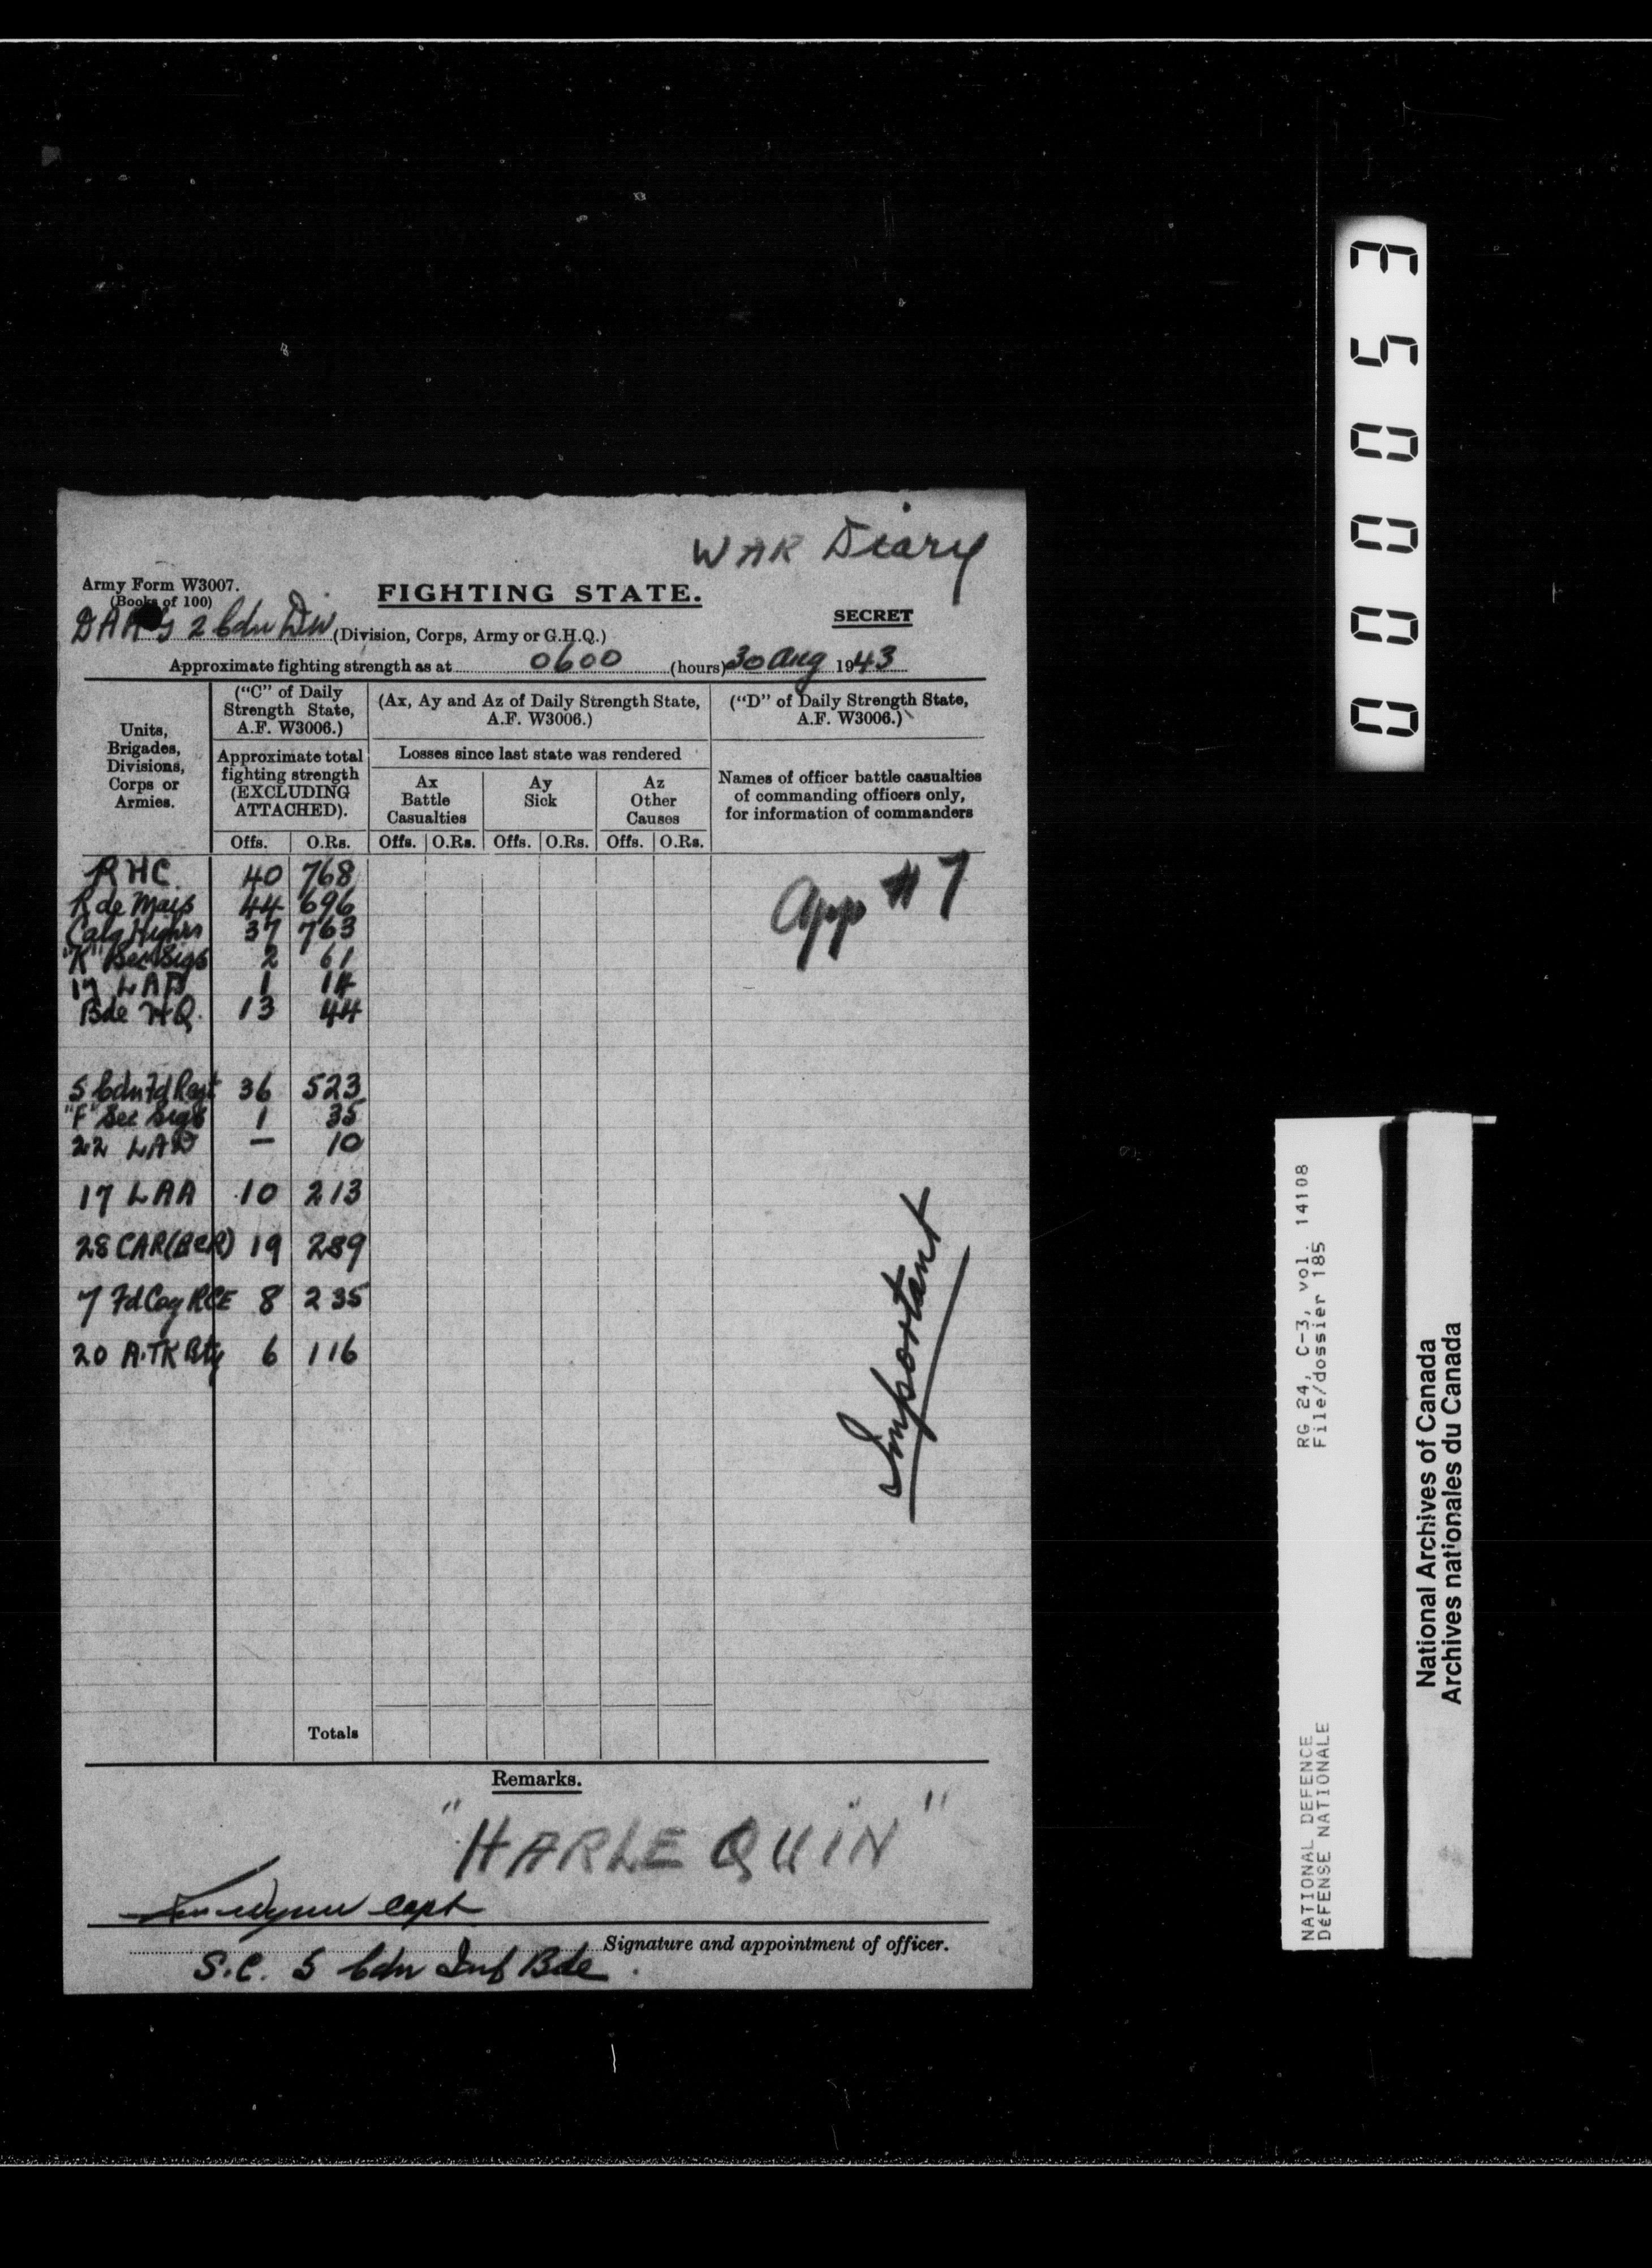 WAR Diary
Army Form W3007.
(Books of 100)
FIGHTING STATE.
SECRET
DAAG 2 Cdn Div (Division, Corps, Army or G.H.Q.)
Approximate fighting strength as at 0600 (hours) 30 Aug 1943
Units, Brigades, Divisions, Corps or Armies.
("C" of Daily Strength State, A.F. W3006.)
Approximate total fighting strength (EXCLUDING ATTACHED).
(Ax, Ay and Az of Daily Strength State, A.F. W3006.)
Losses since last state was rendered
Ax Battle Casualties
Ay Sick
Az Other Causes
("D" of Daily Strength State, A.F. W3006.)
Names of officer battle casualties of commanding officers only, for information of commanders
Offs. O.Rs. Offs. O.Rs. Offs. O.Rs. Offs. O.Rs.
RHC 40 768
R de Mais 44 696
Calg Highrs 37 763
"K" Sec Sigs 2 61
17 LAD 1 14
Bde HQ. 13 44
5 Cdn Fd Regt 36 523
"F" Sec Sigs 1 35
22 LAD — 10
17 LAA 10 213
28 CAR(BCR) 19 289
7 Fd Coy RCE 8 235
20 A.TK Bty 6 116
App # 7
Important
Totals
Remarks.
"HARLEQUIN"
Capt
Signature and appointment of officer.
S.C. 5 Cdn Inf Bde.
000053
RG 24, C-3, vol. 14108
File/dossier 185
NATIONAL DEFENCE
DÉFENSE NATIONALE
National Archives of Canada
Archives nationales du Canada